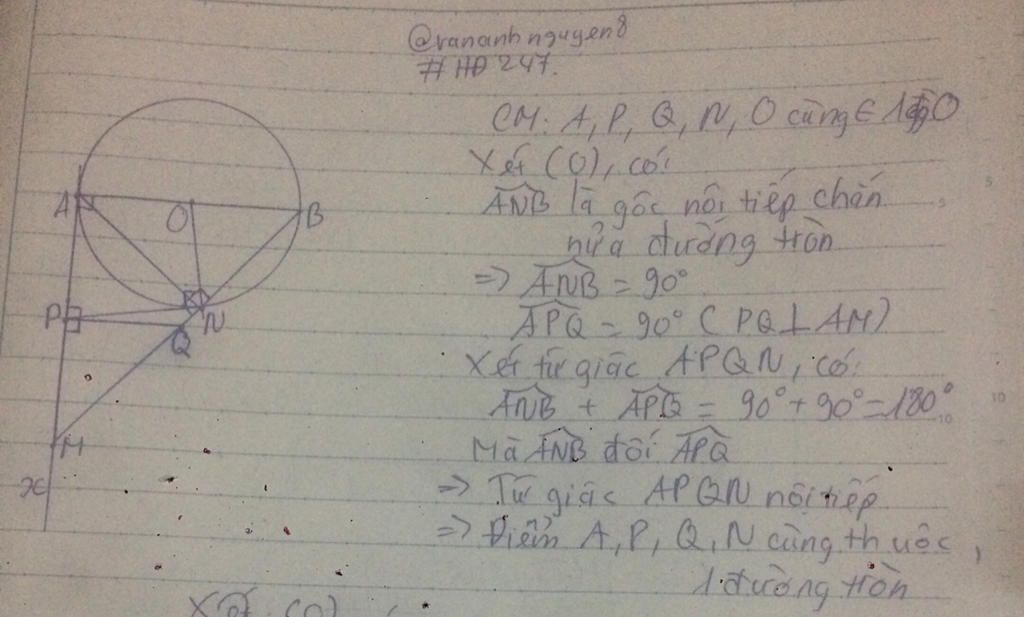 @vananhnguyen8
#HĐ247.
CM: A, P, Q, N, O cùng ∈ 1 O
Xét (O), có:
ANB là góc nội tiếp chắn
nửa đường tròn
=> ANB = 90°
APQ = 90° (PQ ⊥ AM)
Xét tứ giác APQN, có:
ANB + APQ = 90° + 90° = 180°
Mà ANB đối APQ
=> Tứ giác APQN nội tiếp
=> Điểm A, P, Q, N cùng thuộc,
1 đường tròn
Xét (O)
A
O
B
P
N
Q
M
x
5
5
10
10